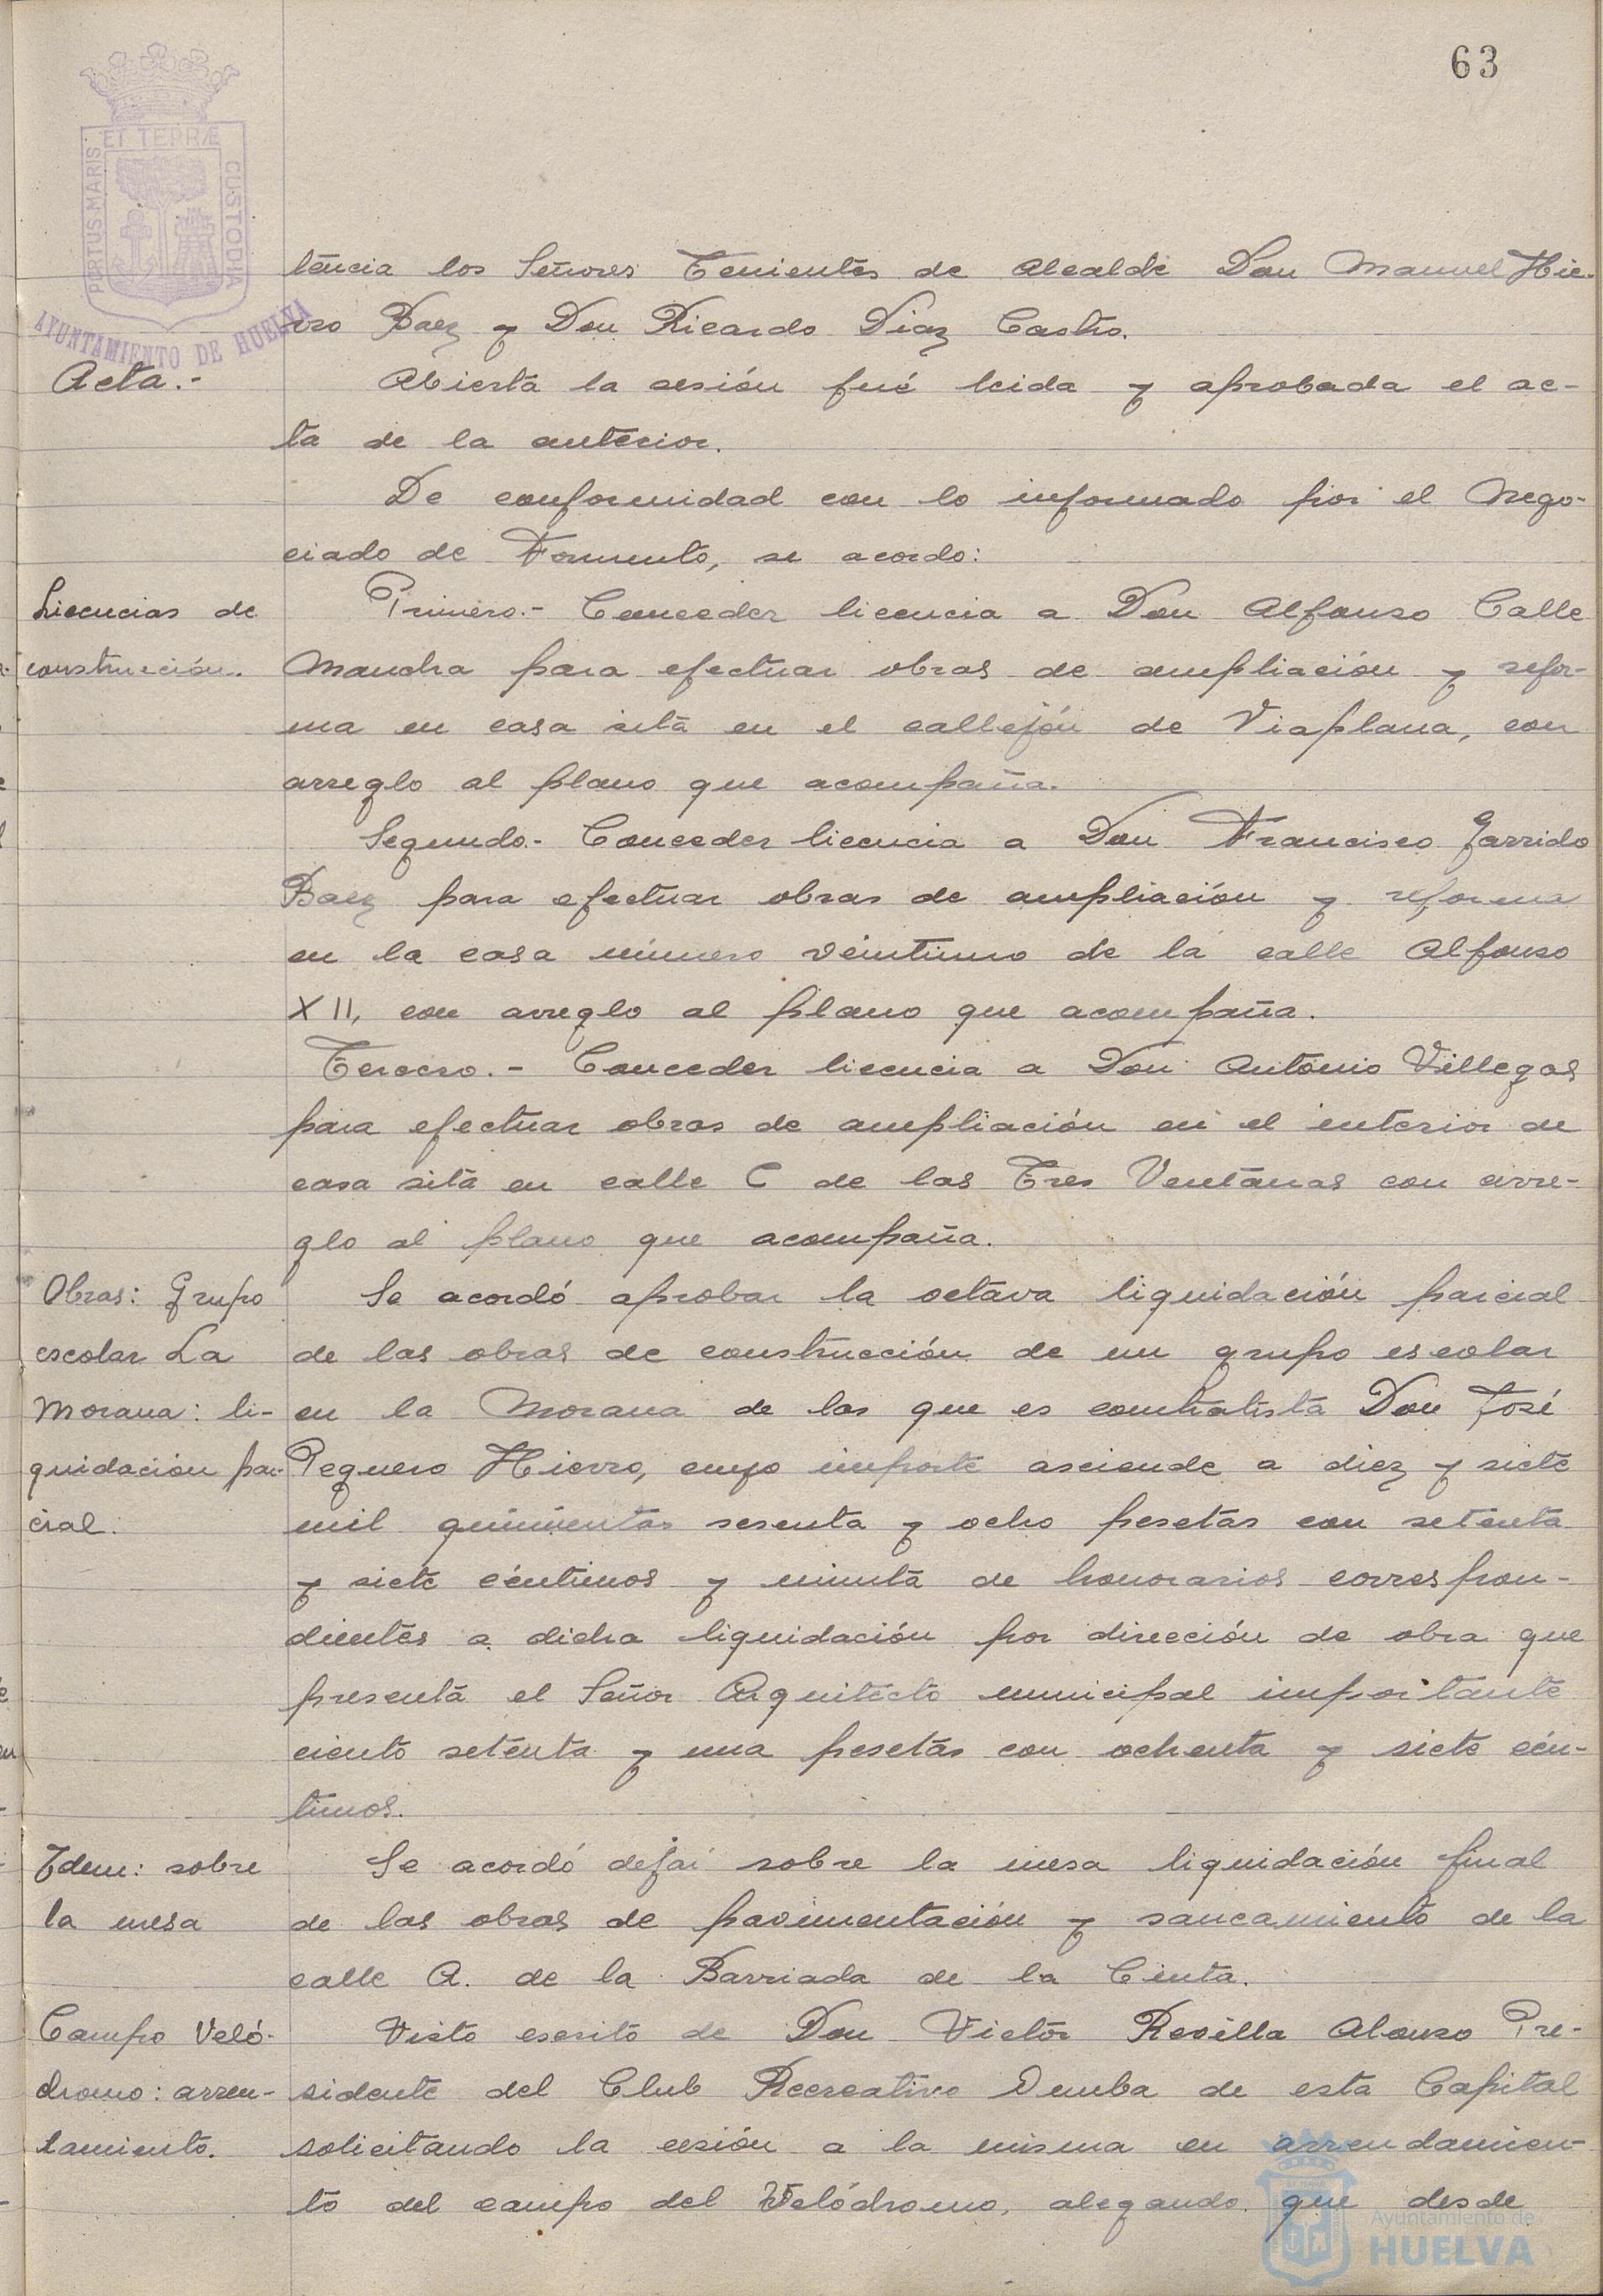 63
PORTUS MARIS ET TERRÆ CUSTODIA
AYUNTAMIENTO DE HUELVA
tencia los Señores Tenientes de Alcalde Don Manuel Hie-
rro Baez y Don Ricardo Diaz Castro.
Acta.-
Abierta la sesión fué leida y aprobada el ac-
ta de la anterior.
De conformidad con lo informado por el Nego-
ciado de Fomento, se acordo:
Licencias de
construcción.
Primero.- Conceder licencia a Don Alfonso Calle
Mancha para efectuar obras de ampliación y refor-
ma en casa sita en el callejón de Viaplana, con
arreglo al plano que acompaña.
Segundo.- Conceder licencia a Don Francisco Garrido
Baez para efectuar obras de ampliación y reforma
en la casa número veintiuno de la calle Alfonso
XII, con arreglo al plano que acompaña.
Tercero.- Conceder licencia a Don Antonio Villegas
para efectuar obras de ampliación en el interior de
casa sita en calle C de las Tres Ventanas con arre-
glo al plano que acompaña.
Obras: Grupo
escolar La
Morana: li-
quidación par-
cial.
Se acordó aprobar la octava liquidación parcial
de las obras de construcción de un grupo escolar
en la Morana de las que es contratista Don José
Peguero Hierro, cuyo importe asciende a diez y siete
mil quinientas sesenta y ocho pesetas con setenta
y siete céntimos y minuta de honorarios correspon-
dientes a dicha liquidación por dirección de obra que
presenta el Señor Arquitecto municipal importante
ciento setenta y una pesetas con ochenta y siete cén-
timos.
Idem: sobre
la mesa
Se acordó dejar sobre la mesa liquidación final
de las obras de pavimentación y saneamiento de la
calle A. de la Barriada de la Cinta.
Campo Veló-
dromo: arren-
tamiento.
Visto escrito de Don Victor Revilla Alonso Pre-
sidente del Club Recreativo Onuba de esta Capital
solicitando la cesión a la misma en arrendamien-
to del campo del Velódromo, alegando que desde
Ayuntamiento de
HUELVA